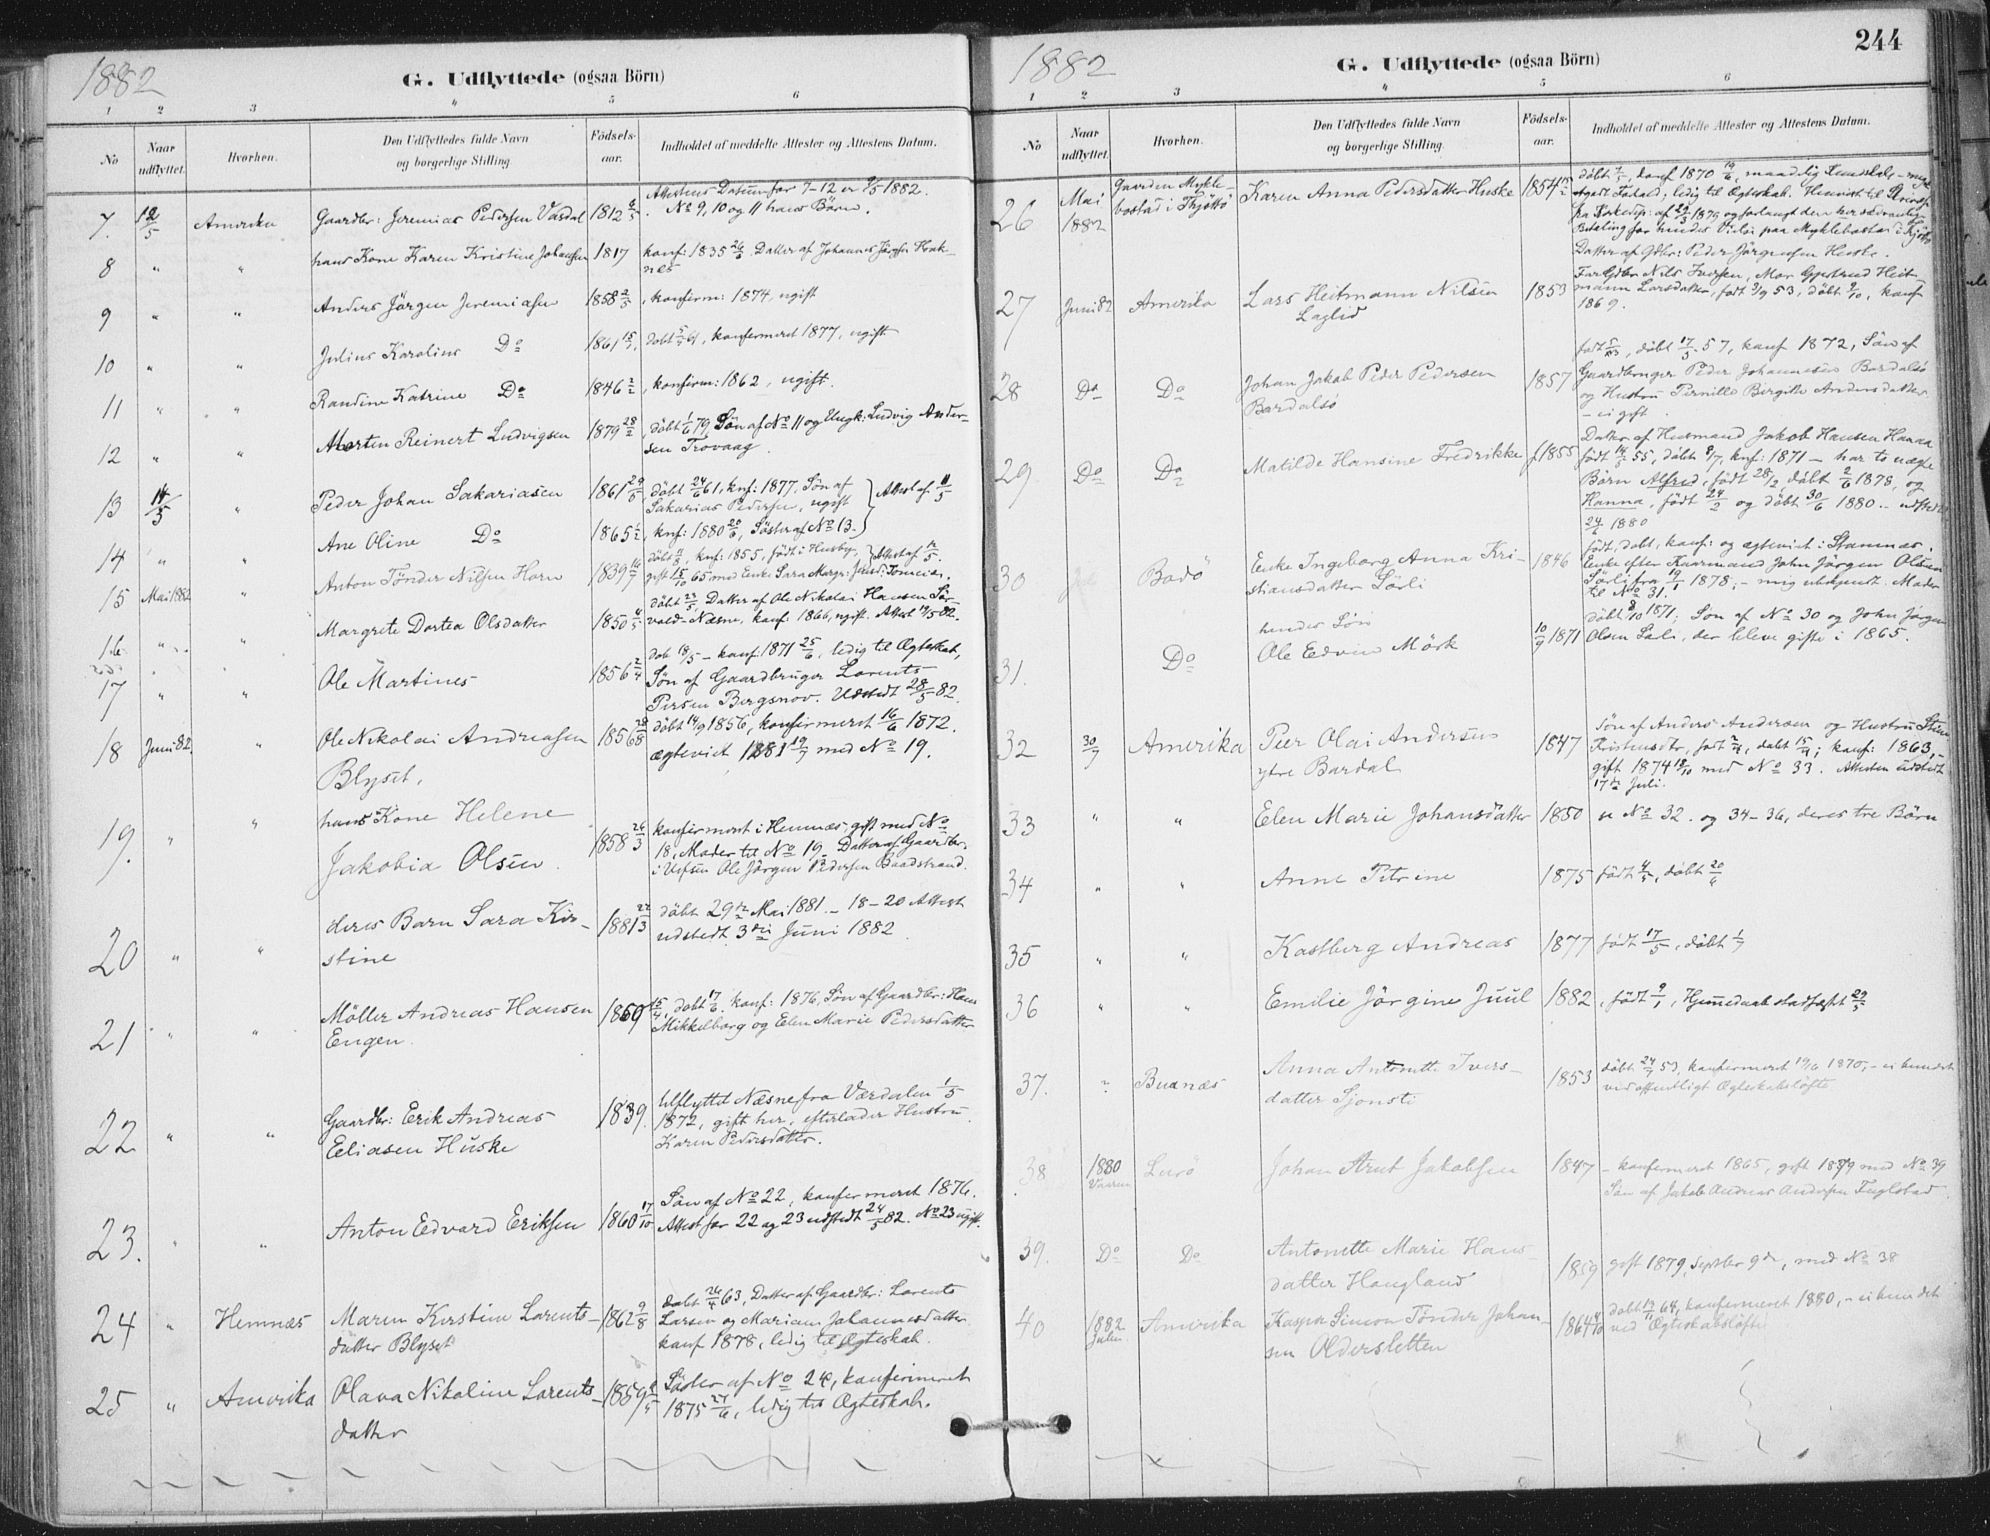 1882
G. Udflyttede (ogsaa Börn)
1 2 3 4 5 6
No
Naar udflyttet.
Hvorhen.
Den Udflyttedes fulde Navn og borgerlige Stilling.
Födsels-aar.
Indholdet af meddelte Attester og Attestens Datum.
Attestens Datum for 7-12 er 9/5 1882.
7. 12/5 Amerika Gaardbr: Jeremias Pedersen Vasdal 1812 No 9, 10 og 11 hans Börn.
8 " " hans Kone Karen Kristine Johansen 1817 konf: 1835 26/6. Datter af Johannes
9 " " Anders Jörgen Jeremiasen 1858 2/5, konfirm: 1874, ugift
10 " " Julius Karolius Do 1861 15/ , konfirmeret 1877, ugift
11 " " Randine Katrine Do 1846 2/2, konfirm: 1862, ugift.
12 " " Morten Reinert Ludvigsen 1879 28/2 döbt 1/6 79, Sön af No 11 og Ungk: Ludvig Ander-
sen Trovaag.
13 14/5 " Peder Johan Sakariasen 1861 29/5 döbt 24/6 61, knf: 1877, Sön af
Sakarias Pedersen, ugift } Attest af 11/5
14 " " Ane Oline Do 1865 , knf: 1880 20/6, Söster af No 13.
15 Mai 1882 " Anton Tönder Nilsen Horn 1839 knf: 1855, födt i Husby, Attest af 12/5.
gift 15/10 65 med Enke Sara Margr:
16 " " Margrete Dortea Olsdatter 1850 4/5 döbt 23/5, Datter af Ole Nikolai Hansen
Næsne, konf: 1866, ugift. Attest 82.
17 " " Ole Martines 1856 2/4 döb 18/5 - konf: 1871 25/6, ledig til Ægteskab,
Sön af Gaardbruger Lorents
Persen Bergsnov. Udstedt 28/5 82.
18 Juni 82. " Ole Nikolai Andreasen 1856 28/8 döbt 14/9 1856, konfirmeret 16/6 1872.
Blyset. ægteviet 1881 19/7 med No 19.
19. " " hans Kone Helene
Jakobia Olsen. 1858 26/3 konfirmeret i Hemnæs, gift med No
18, Moder til No 19. Datter af Gaardbr.
i Vefsen Ole Jörgen Pedersen Baadstrand.
20 " " deres Barn Sara Kir-
stine 1881 22/3 döbt 29de Mai 1881. - 18-20 Attest
udstedt 3die Juni 1882
21 " " Möller Andreas Hansen
Engen. 1860 15/4, döbt 17/6. konf: 1876, Sön af Gaardbr: Hans
Mikkelborg og Elen Marie Pedersdatter
22 " " Gaardbr: Erik Andreas
Eeliasen Huske 1839. Udflyttet Næsne fra Værdalen 1/5
1872, gift her, efterlader Hustru
Karen Pedersdatter.
23. " " Anton Edvard Eriksen 1860 17/10 Sön af No 22, konfirmeret 1876.
Attest for 22 og 23 udstedt 24/5 82. No 23 ugift.
24 " Hemnæs Maren Kirstine Lorents-
datter Blyset 1862 9/8 Döbt 26/4 63, Datter af Gaardbr: Lorents
Larsen og Mariane Johannesdatter
konf 1878, ledig til Ægteskab.
25 " Amerika Olava Nikoline Lorents-
datter 1859 Söster af No 24, konfirmeret
1875 27/6, ledig til Ægteskab.
1882
G. Udflyttede (ogsaa Börn)
244
1 2 3 4 5 6
No
Naar udflyttet.
Hvorhen.
Den Udflyttedes fulde Navn og borgerlige Stilling.
Födsels-aar.
Indholdet af meddelte Attester og Attestens Datum.
26 Mai 1882 Gaarden Mykle-
bostad i Tjöttö Karen Anna Pedersdatter Huske 1854 döbt , konf 1870 19/6, maadelig Kundskab - meget
ledig til Ægteskab. Henvist til
af 29/3 1879 og forlangt den
Betaling for hendes Pleie paa Myklebostad i Tjöttö
Datter af Gdbr: Peder Jörgensen Huske.
27 Juni 82 Amerika Lars Heitmann Nilsen
Laglid 1853 Far Gdbr Nils Iversen, Mor Gjertrud Heit-
mann Larsdatter, födt 3/9 53, döbt 9/10, konf
1869.
28 Do Do Johan Jakob Peder Pedersen
Bardalsö 1857 födt , döbt 17/5 57, konf 1872, Sön af
Gaardbruger Peder Johannesen Bardalsö
og Hustru Pernille Birgitte Andersdatter
- ei gift.
29 Do Do Matilde Hansine Fredrikke f. 1855 Datter af Husmand Jakob Hansen Hanna
födt 14/5 55, döbt 8/7, knf: 1871 - har to uægte
Börn Alfred, födt 28/2 döbt 2/6 1878, og
Hanna, födt 24/2 og döbt 30/6 1880. - udstedt
24/6 1880
30 Bodö Enke Ingeborg Anna Kri-
stiansdatter Sörli 1846 födt, döbt, konf: og ægteviet i Stamnæs.
Enke efter Kaarmand John Jörgen Olsen
Sörli fra 19/1 1878, - mig ubekjent. Moder
til No 31.
31. Do hendes Sön
Ole Edvin Mörk 10/9 1871 döbt 8/10 1871, Sön af No 30 og John Jörgen
Olsen Sörli, der bleve gifte i 1865.
32 30/7 Amerika Peer Olai Andersen
ytre Bardal 1847 Sön af Anders Andersen og Hustru Stine
Kristensdtr, födt , döbt 15/ ; konf: 1863,
gift 1874 18/10 med No 33. Attesten udstedt
17de Juli.
33 " " Elen Marie Johansdatter 1850 se No 32. og 34-36, deres tre Börn
34 " " Anne Petrine 1875 födt 4/5, döbt 20/6
35 " " Kastberg Andreas 1877 födt 17/5, döbt 1/7
36 " " Emilie Jörgine Juul 1882, födt 9/1, Hjemmedaab stadfæstet 29/5
37. " Buanæs Anna Antonette Ivers-
datter Sjonsti 1853 döbt 24/7 53, konfirmeret 19/6 1870, - ei bundet
ved offentligt Ægteskabslöfte
38. 1880 Vaaren Lurö Johan Arnt Jakobsen 1847 - konfirmeret 1865, gift 1879 med No 39
Sön af Jakob Andreas Andersen Fuglstad
39. Do Do Antonette Marie Hans-
datter Haugland 1859 gift 1879, September 9de, med No 38
40 1882 Julen Amerika Kaspar Simon Tönder Johan-
sen Oldersletten 1864 4/10 döbt 19/11 64, konfirmeret 1880, - ei bundet
ved Ægteskabslöfte